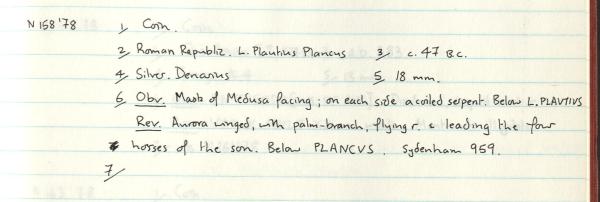 N 158 '78 1, Coin.
2, Roman Republic. L. Plautius Plancus 3, c. 47 B.C.
4, Silver. Denarius 5, 18 mm.
6, Obv. Mask of Medusa facing; on each side a coiled serpent. Below L. PLAVTIVS
Rev. Aurora winged, with palm-branch, flying r. & leading the four
horses of the son. Below PLANCVS. Sydenham 959.
7,